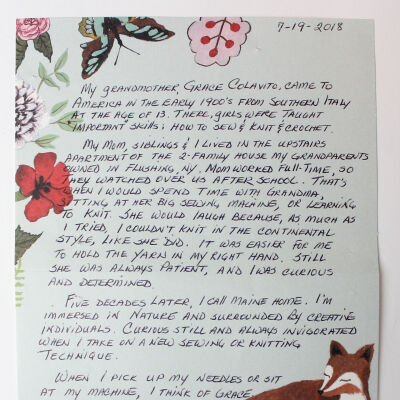 7-19-2018
My grandmother, Grace Colavito, came to
America in the early 1900's from Southern Italy
at the age of 13. There, girls were taught
"important" skills; how to sew & knit & crochet.
My Mom, siblings & I lived in the upstairs
apartment of the 2-family house my grandparents
owned in Flushing, NY. Mom worked full-time, so
they watched over us after school. That's
when I would spend time with Grandma,
sitting at her big sewing machine, or learning
to knit. She would laugh because, as much as
I tried, I couldn't knit in the continental
style, like she did. It was easier for me
to hold the yarn in my right hand. Still
she was always patient, and I was curious
and determined.
Five decades later, I call Maine home. I'm
immersed in nature and surrounded by creative
individuals. Curious still and always invigorated
when I take on a new sewing or knitting
technique.
When I pick up my needles or sit
at my machine, I think of Grace.